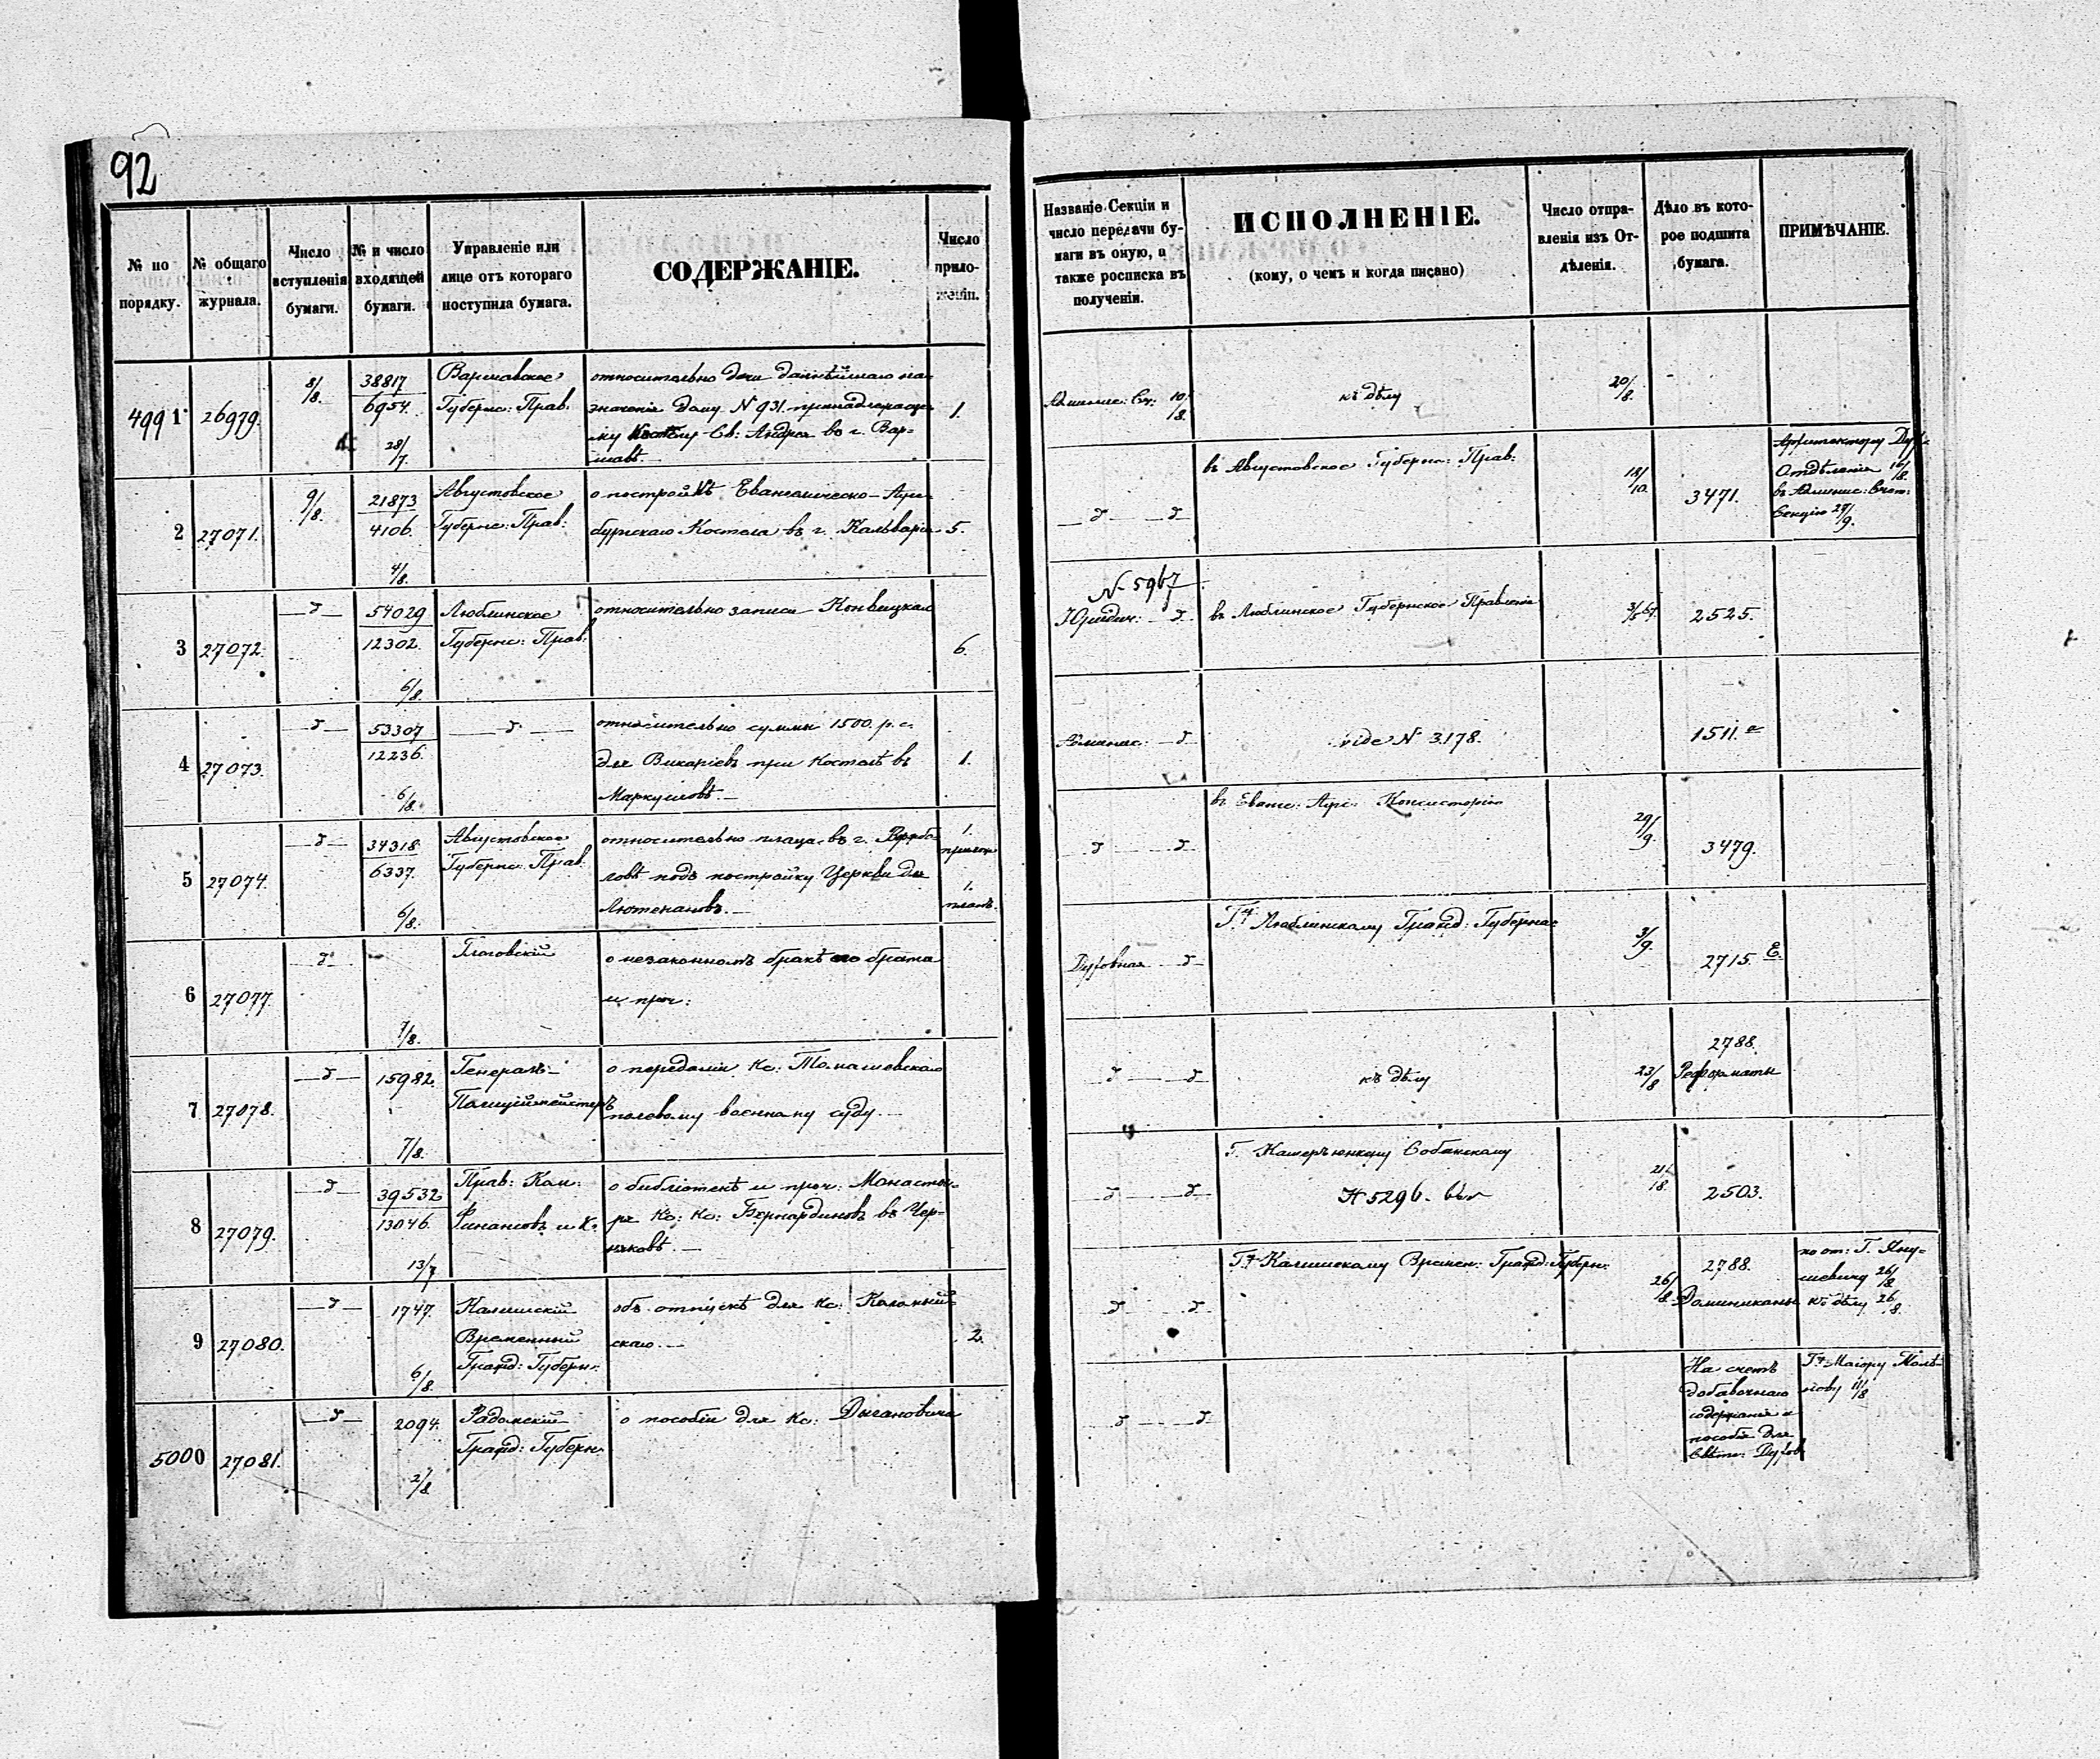 92
№ по порядку.
№ общаго журнала.
Число вступленія бумаги.
№ и число входящей бумаги.
Управленіе или лице отъ котораго поступила бумага.
СОДЕРЖАНІЕ.
Число приложеніи.
4991
26979.
8/8.
38817
6954.
28/7.
Варшавское
Губернс: Прав.
относительно
значенія дому N 931. принадлежаще
му Костелу Св: Андрея въ г. Вар=
шавѣ.
1.
2
27071.
9/8.
21873
4106.
4/8.
Августовское
Губернс: Прав:
о постройкѣ Евангелическо-Аугс
бургскаго Костела въ г. Кальваріи
5.
3
27072.
—д—
54029
12302.
6/8.
Люблинское
Губернс: Прав:
относительно записи
6.
4
27073.
—д—
53307
12236.
6/8.
—д—
относительно суммы 1500. р. с.
для Викаріевъ при Костелѣ въ
Маркушовѣ.—
1.
5
27074.
—д—
34318
6337.
6/8.
Августовское
Губернс: Прав.
относительно плаца въ г.
ловѣ подъ постройку Церкви для
Лютерановъ.—
1.
прилож
1.
планъ.
6
27077.
—д—
7/8.
о незаконномъ бракѣ его брата
и проч:
7
27078.
—д—
15982.
7/8.
Генералъ-
Полицiймейстеръ
о передачи Кс: Томашевскаго
полевому военному суду.—
8
27079.
—д—
39532
13046.
13/7
Прав: Ком:
Финансовъ и К.
о библіотекѣ и проч: Монасты-
ря Кс: Кс: Бернардиновъ въ Чер=
няковѣ.—
9
27080.
—д—
1747.
6/8.
Калишскій
Временный
Гражд: Губерн:
объ отпускѣ для Кс:
скаго.—
2.
5000
27081.
—д—
2094.
2/8.
Радомскій
Гражд: Губерн.
о пособіи для Кс:
Названіе Секціи и
число передачи бу-
маги въ оную, а
также росписка въ
полученіи.
ИСПОЛНЕНІЕ.
(кому, о чемъ и когда писано)
Число отпра-
вленія изъ От-
дѣленія.
Дѣло въ кото-
рое подшита
бумага.
ПРИМѢЧАНІЕ.
10/8.
къ дѣлу
20/8.
—д— —д
въ Августовское Губернс: Прав:
18/10.
3471.
Архитектору
Отдѣленія 16/8.
въ Админис: Счет:
Секцію 27/9.
N 5967
Юридич: —д
въ Люблинское Губернское Правленіе
3/5 67.
2525.
—д
vide N 3178.
1511.
—д— —д
въ Еванг: Аугс: Консисторію
29/9.
3479.
Духовная —д
Гну Люблинскому Гражд: Губернат
3/9.
2715. Е.
—д— —д
къ дѣлу
23/8
2788.
Реформаты
—д— —д
Г. Камеръюнкеру Собанскому
N 5296.
2503.
—д— —д
Гну Калишскому Времен: Гражд: Губерн:
26/8.
2788.
Доминиканы
по от: Г. Яну=
шевичу 26/8
къ дѣлу 26/8.
—д— —д
На счетъ
добавочнаго
содержанія и
пособія для
Свѣтс: Духов
Гну Маіору
11/8